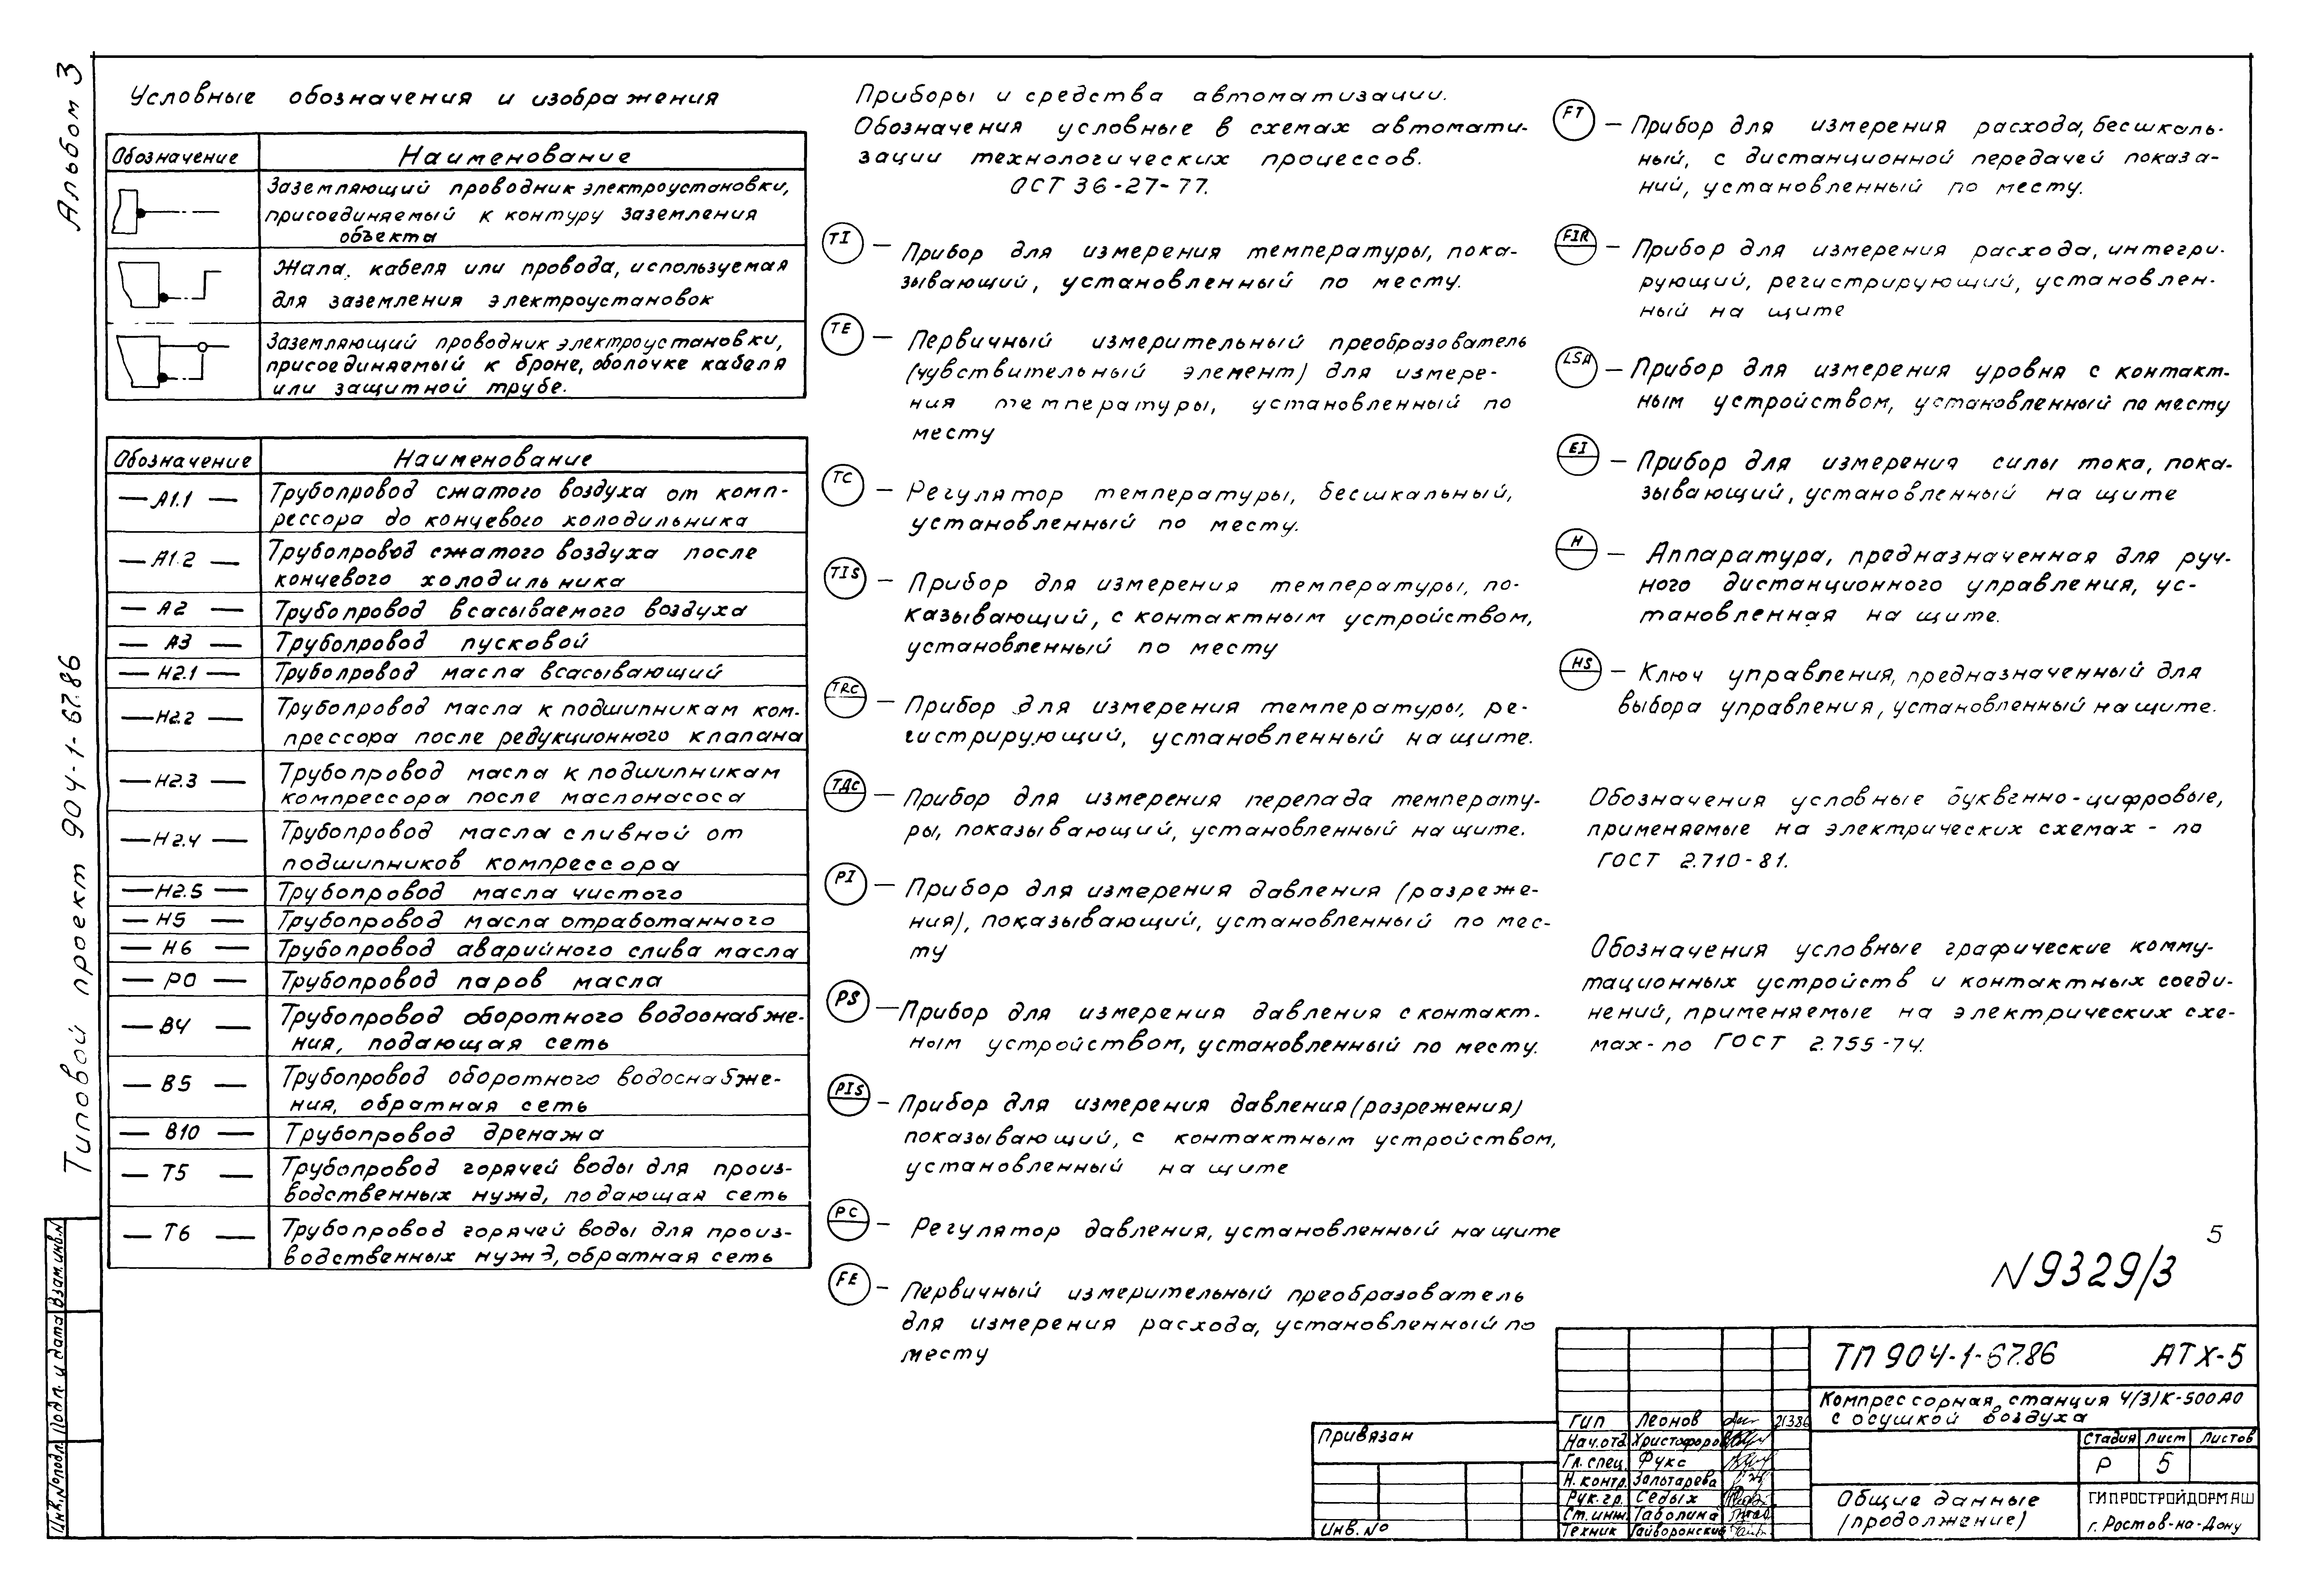 Альбом 3
Типовой проект 904-1-67.86
Условные обозначения и изображения
Обозначение Наименование
Заземляющий проводник электроустановки,
присоединяемый к контуру заземления
объекта
Жала кабеля или провода, используемая
для заземления электроустановок
Заземляющий проводник электроустановки,
присоединяемый к броне, оболочке кабеля
или защитной трубе.
Обозначение Наименование
— А1.1 — Трубопровод сжатого воздуха от комп-
рессора до концевого холодильника
— А1.2 — Трубопровод сжатого воздуха после
концевого холодильника
— А2 — Трубопровод всасываемого воздуха
— А3 — Трубопровод пусковой
— Н2.1 — Трубопровод масла всасывающий
— Н2.2 — Трубопровод масла к подшипникам ком-
прессора после редукционного клапана
— Н2.3 — Трубопровод масла к подшипникам
компрессора после маслонасоса
— Н2.4 — Трубопровод масла сливной от
подшипников компрессора
— Н2.5 — Трубопровод масла чистого
— Н5 — Трубопровод масла отработанного
— Н6 — Трубопровод аварийного слива масла
— Р0 — Трубопровод паров масла
— В4 — Трубопровод оборотного водоснабже-
ния, подающая сеть
— В5 — Трубопровод оборотного водоснабже-
ния, обратная сеть
— В10 — Трубопровод дренажа
— Т5 — Трубопровод горячей воды для произ-
водственных нужд, подающая сеть
— Т6 — Трубопровод горячей воды для произ-
водственных нужд, обратная сеть
Приборы и средства автоматизации.
Обозначения условные в схемах автомати-
зации технологических процессов.
ОСТ 36-27-77.
TI — Прибор для измерения температуры, пока-
зывающий, установленный по месту.
TE — Первичный измерительный преобразователь
(чувствительный элемент) для измере-
ния температуры, установленный по
месту
TC — Регулятор температуры, бесшкальный,
установленный по месту.
TIS — Прибор для измерения температуры, по-
казывающий, с контактным устройством,
установленный по месту
TRC — Прибор для измерения температуры, ре-
гистрирующий, установленный на щите.
TДC — Прибор для измерения перепада температу-
ры, показывающий, установленный на щите.
PI — Прибор для измерения давления (разреже-
ния), показывающий, установленный по мес-
ту
PS — Прибор для измерения давления с контакт-
ным устройством, установленный по месту.
PIS — Прибор для измерения давления (разрежения)
показывающий, с контактным устройством,
установленный на щите
PC — Регулятор давления, установленный на щите
FE — Первичный измерительный преобразователь
для измерения расхода, установленный по
месту
FT — Прибор для измерения расхода, бесшкаль-
ный, с дистанционной передачей показа-
ний, установленный по месту.
FIR — Прибор для измерения расхода, интегри-
рующий, регистрирующий, установлен-
ный на щите
LSA — Прибор для измерения уровня с контакт-
ным устройством, установленный по месту
EI — Прибор для измерения силы тока, пока-
зывающий, установленный на щите
H — Аппаратура, предназначенная для руч-
ного дистанционного управления, ус-
тановленная на щите.
HS — Ключ управления, предназначенный для
выбора управления, установленный на щите.
Обозначения условные буквенно-цифровые,
применяемые на электрических схемах - по
ГОСТ 2.710-81.
Обозначения условные графические комму-
тационных устройств и контактных соеди-
нений, применяемые на электрических схе-
мах - по ГОСТ 2.755-74.
5
N9329/3
Взам.инв.N
Подп. и дата
Инв.№подл.
Привязан
Инв. №
Гип Леонов 21386
Нач.отд. Христофоров
Гл. спец. Фукс
Н. контр. Золотарева
Рук. гр. Седых
Ст. инж. Таболина
Техник Гайворонский
ТП 904-1-67.86 АТХ-5
Компрессорная станция 4/3/К-500АО
с осушкой воздуха
Стадия Лист Листов
Р 5
Общие данные
(продолжение)
ГИПРОСТРОЙДОРМАШ
г. Ростов-на-Дону